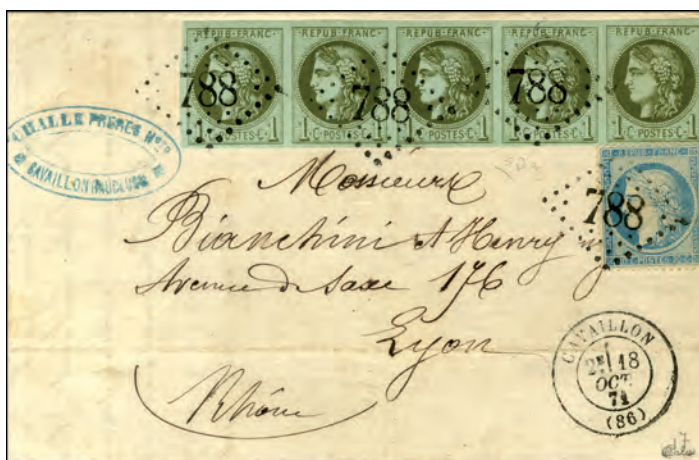 REPUB·FRANC· REPUB·FRANC· REPUB·FRANC· REPUB·FRANC· REPUB·FRANC·
788 788 788
1·C·POSTES·C·1 1·C·POSTES·C·1 1·C·POSTES·C·1 1·C·POSTES·C·1 1·C·POSTES·C·1
CHALLE FRERES
CAVAILLON VAUCLUSE
REPUB·FRANC·
788
POSTES
Messieurs
Bianchini & Henry
Avenue de Saxe 176
Lyon
Rhône
CAVAILLON
2E 18
OCT.
71
(86)